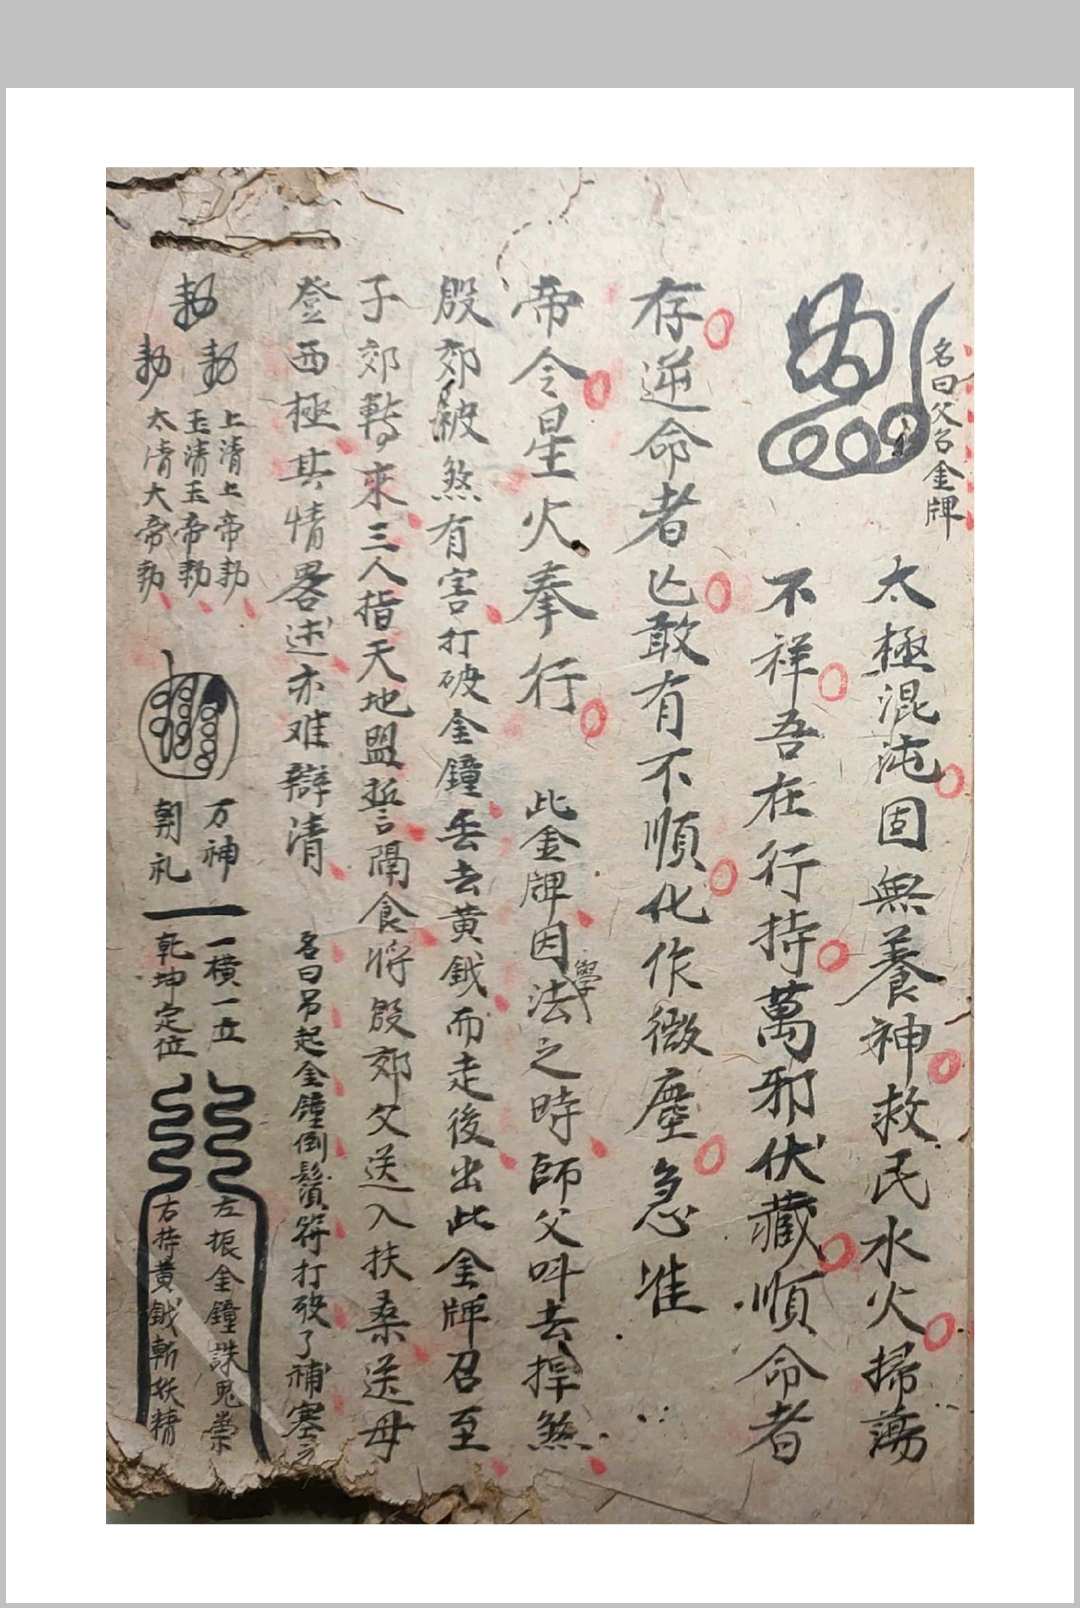 名曰父名金牌
太極混沌固無養神救民水火掃蕩
不祥吾在行持萬邪伏藏順命者
存逆命者亡敢有不順化作微塵急准
帝令星火奉行
此金牌因學法之時師父呌去捍煞
殷郊被煞有害打破金鐘丢去黄鉞而走後出此金牌召至
子郊轉來三人指天地盟誓隔食將殷郊父送入扶桑送母
登西極其情畧述亦难辯清
名曰吊起金鐘倒鬚符打破了補塞之
勅
勅
勅
上清上帝勅
玉清玉帝勅
太清大帝勅
万神
朝礼
一横一立
乾坤定位
左振金鐘誅鬼祟
右持黄鉞斬妖精